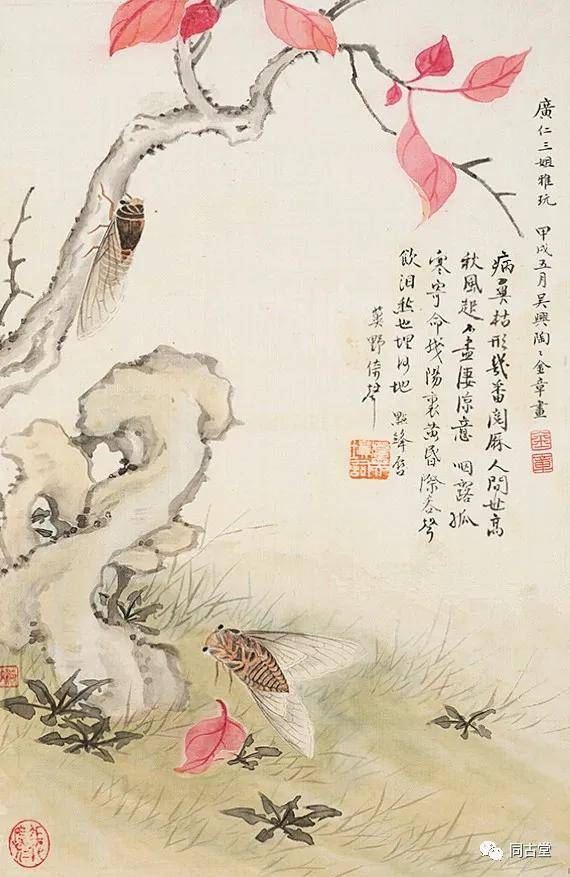 廣仁三姐雅玩 甲戌五月吴興陶〻金章畫
金章
病翼枯形幾番閱厤人間世高
秋風起不盡凄涼意 咽露孤
寒寄命殘陽裏黃昏際吞聲
飲泪愁也埋何地 點絳唇
野倚聲
同古堂